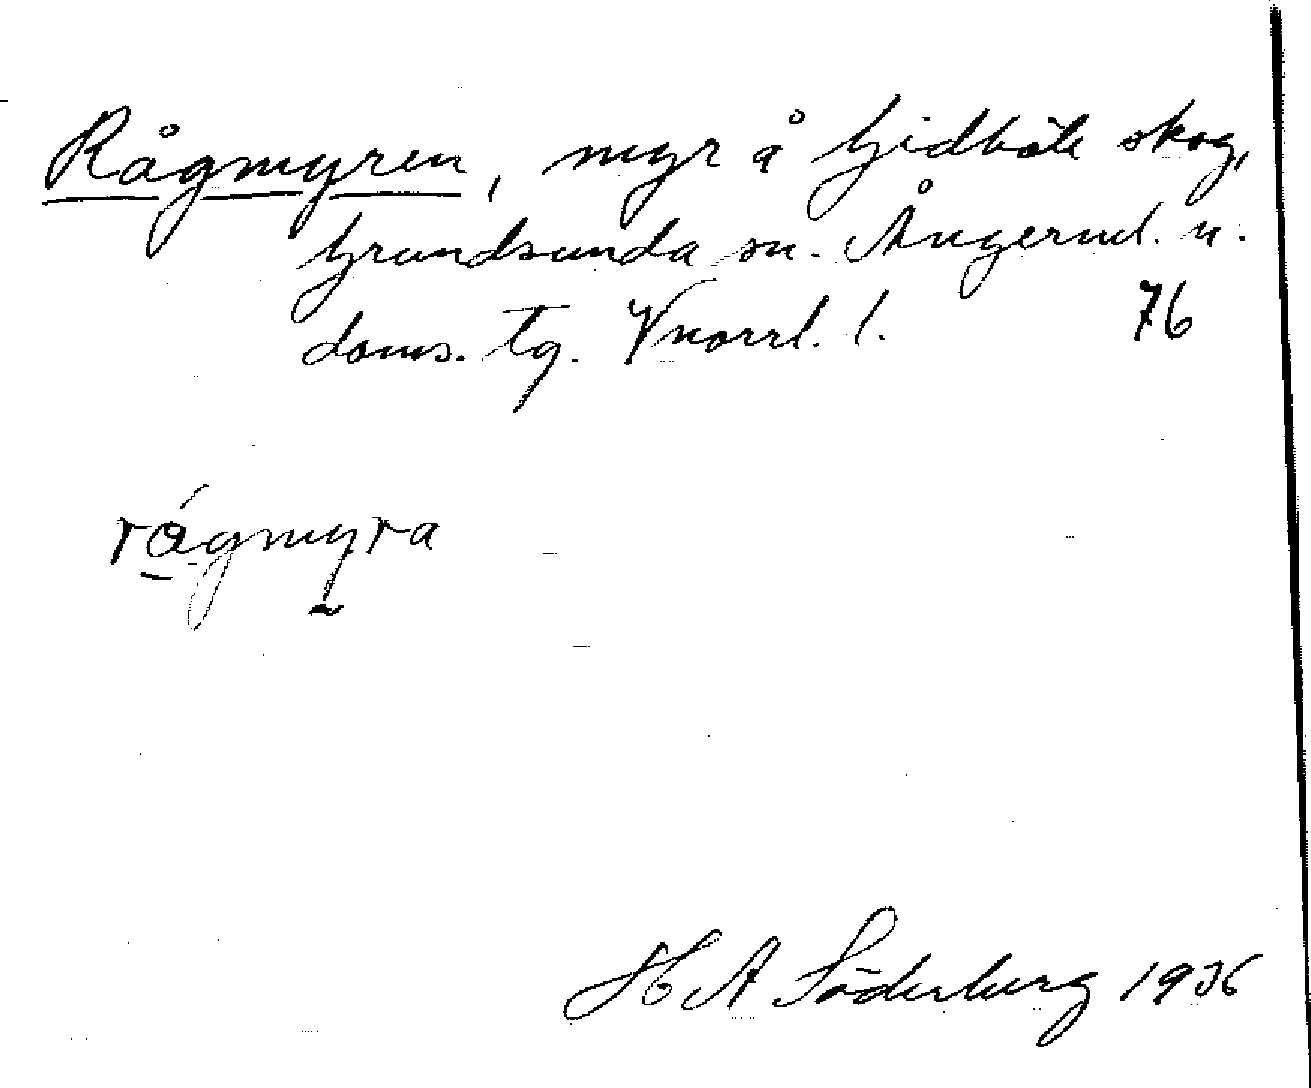 Rågmyren, myr å Gidböle skog,
Grundsunda sn. Ångerml. n.
doms. tg. Vnorrl. l. 76
rågmyra
H A Söderberg 1936